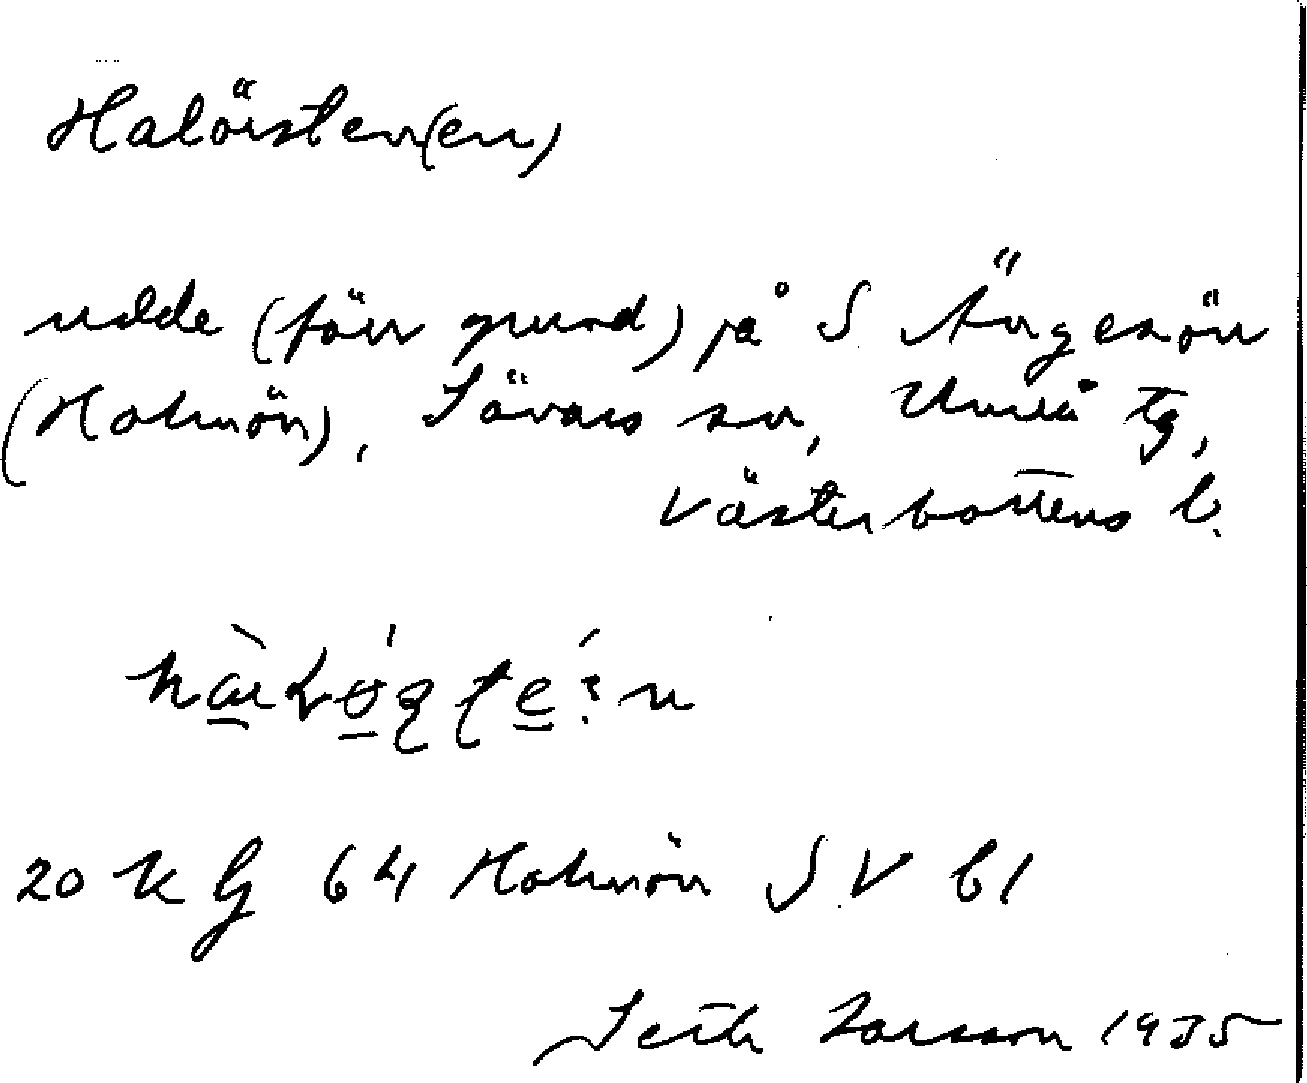 Halörsten(en)
udde (förr grund) på S Ängesön
(Holmön), Sävars sn, Umeå tg,
Västerbottens l.
20 K G 64 Holmön SV bl
Seth Larsson 1935